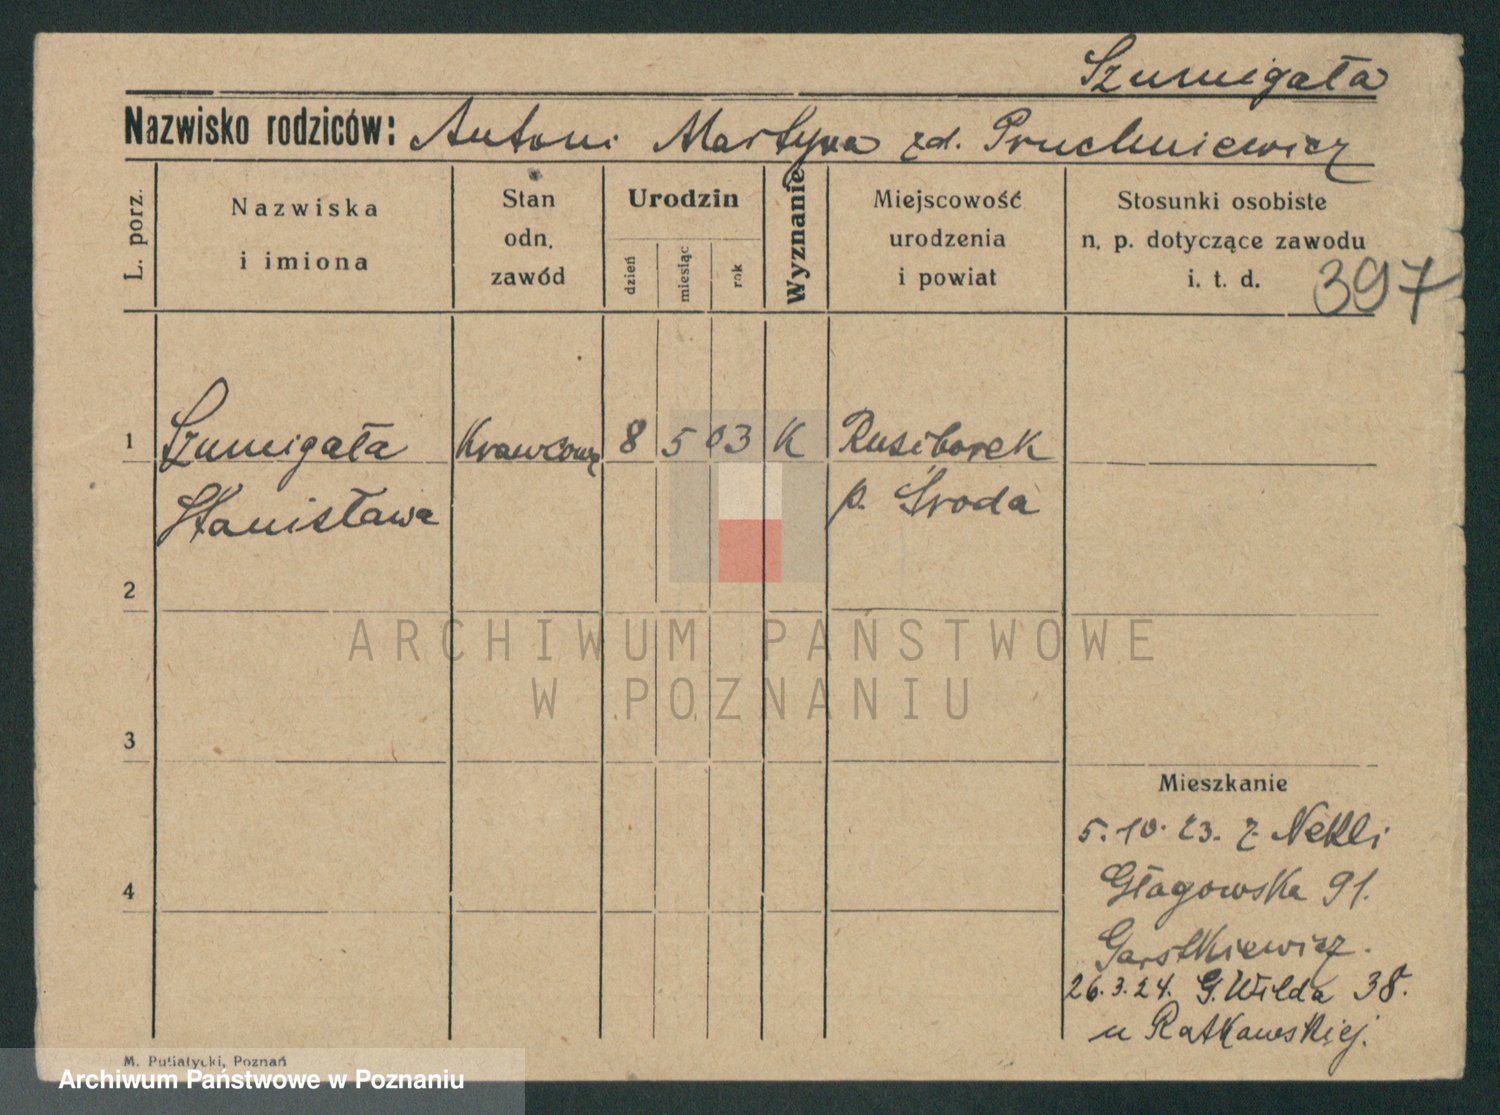 Szumigała
Nazwisko rodziców: Antoni Martyna zd. Pruchniewicz
L. porz.
Nazwiska
i imiona
Stan
odn.
zawód
Urodzin
dzień
miesiąc
rok
Wyznanie
Miejscowość
urodzenia
i powiat
Stosunki osobiste
n. p. dotyczące zawodu
i. t. d.
397
1 Szumigała Krawcowa 8 5 03 K Rusiborek
Stanisława p. Środa
2
3
4
Mieszkanie
5.10.23. z Nekli
Głagowska 91.
Garstkiewicz.
26.3.24. G. Wilda 38.
u Ratkowskiej.
M. Putiatycki, Poznań
ARCHIWUM PAŃSTWOWE
W POZNANIU
Archiwum Państwowe w Poznaniu